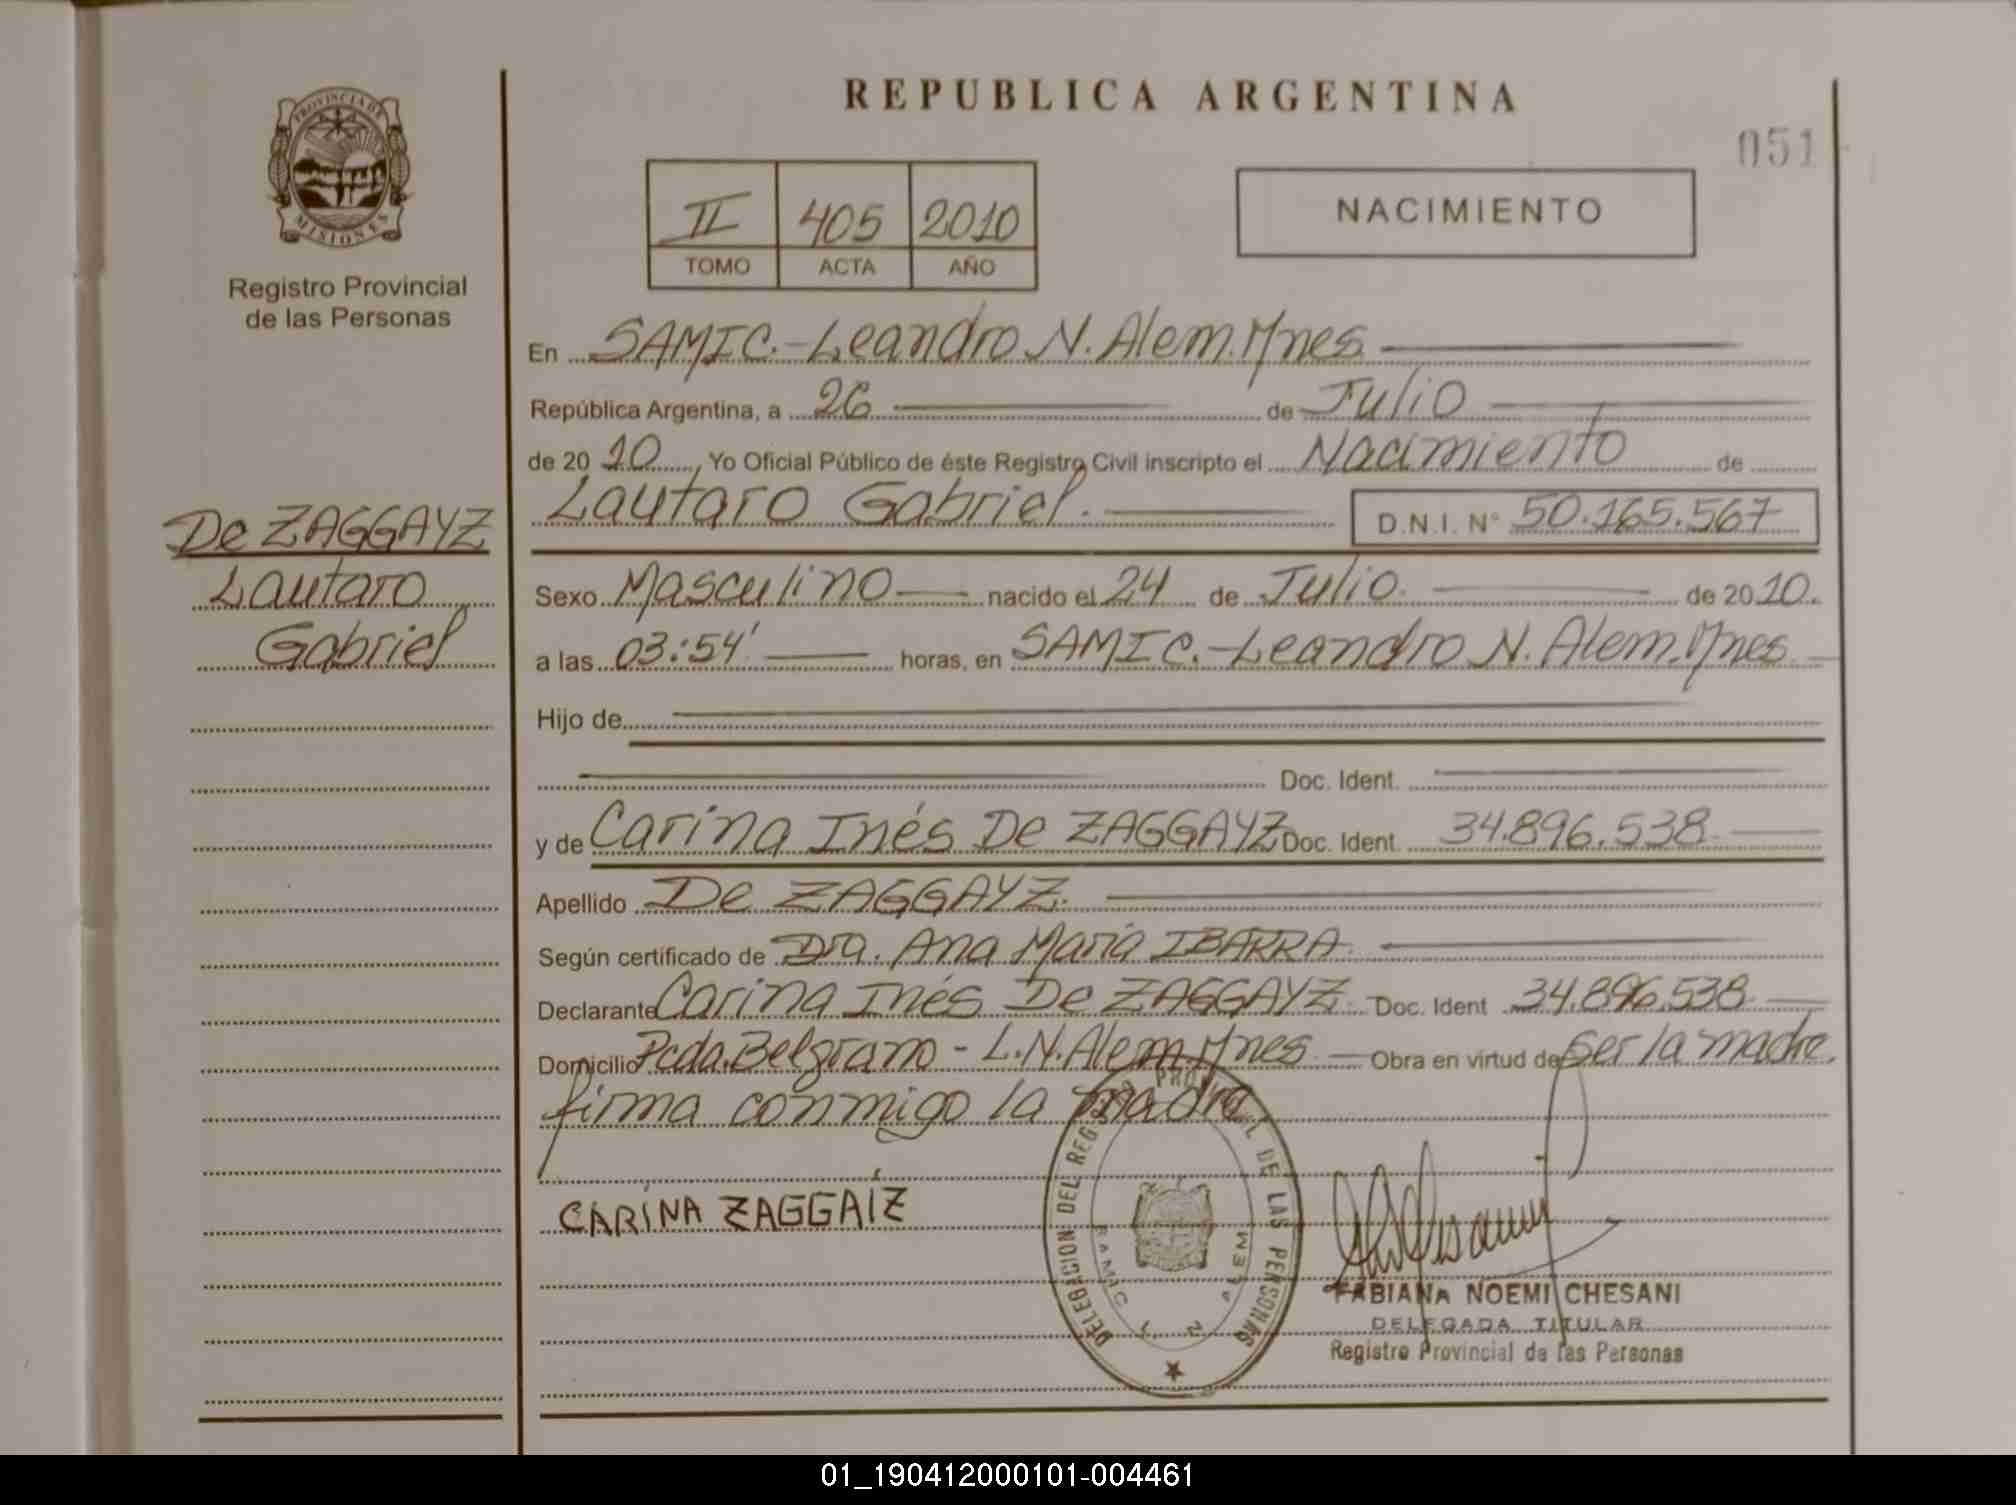 REPUBLICA ARGENTINA
051
PROVINCIA DE
MISIONES
Registro Provincial
de las Personas
II 405 2010
TOMO ACTA AÑO
NACIMIENTO
En SAMIC.-Leandro N. Alem. Mnes
República Argentina, a 26 de Julio
de 20 10, Yo Oficial Público de éste Registro Civil inscripto el Nacimiento de
Lautaro Gabriel. D.N.I. N° 50.165.567
De ZAGGAYZ
Lautaro
Gabriel
Sexo Masculino nacido el 24 de Julio. de 20 10.
a las 03:54' horas, en SAMIC.-Leandro N. Alem. Mnes
Hijo de
Doc. Ident.
y de Carina Inés De ZAGGAYZ Doc. Ident. 34.896.538
Apellido De ZAGGAYZ.
Según certificado de Dra. Ana María IBARRA
Declarante Carina Inés De ZAGGAYZ Doc. Ident 34.896.538
Domicilio Pcda. Belgrano - L.N.Alem. Mnes Obra en virtud de Ser la madre,
firma conmigo la madre
CARINA ZAGGAÍZ
DELEGACION DEL REGISTRO PROVINCIAL DE LAS PERSONAS
RAMIC L. N. ALEM
FABIANA NOEMI CHESANI
DELEGADA TITULAR
Registro Provincial de las Personas
01_190412000101-004461